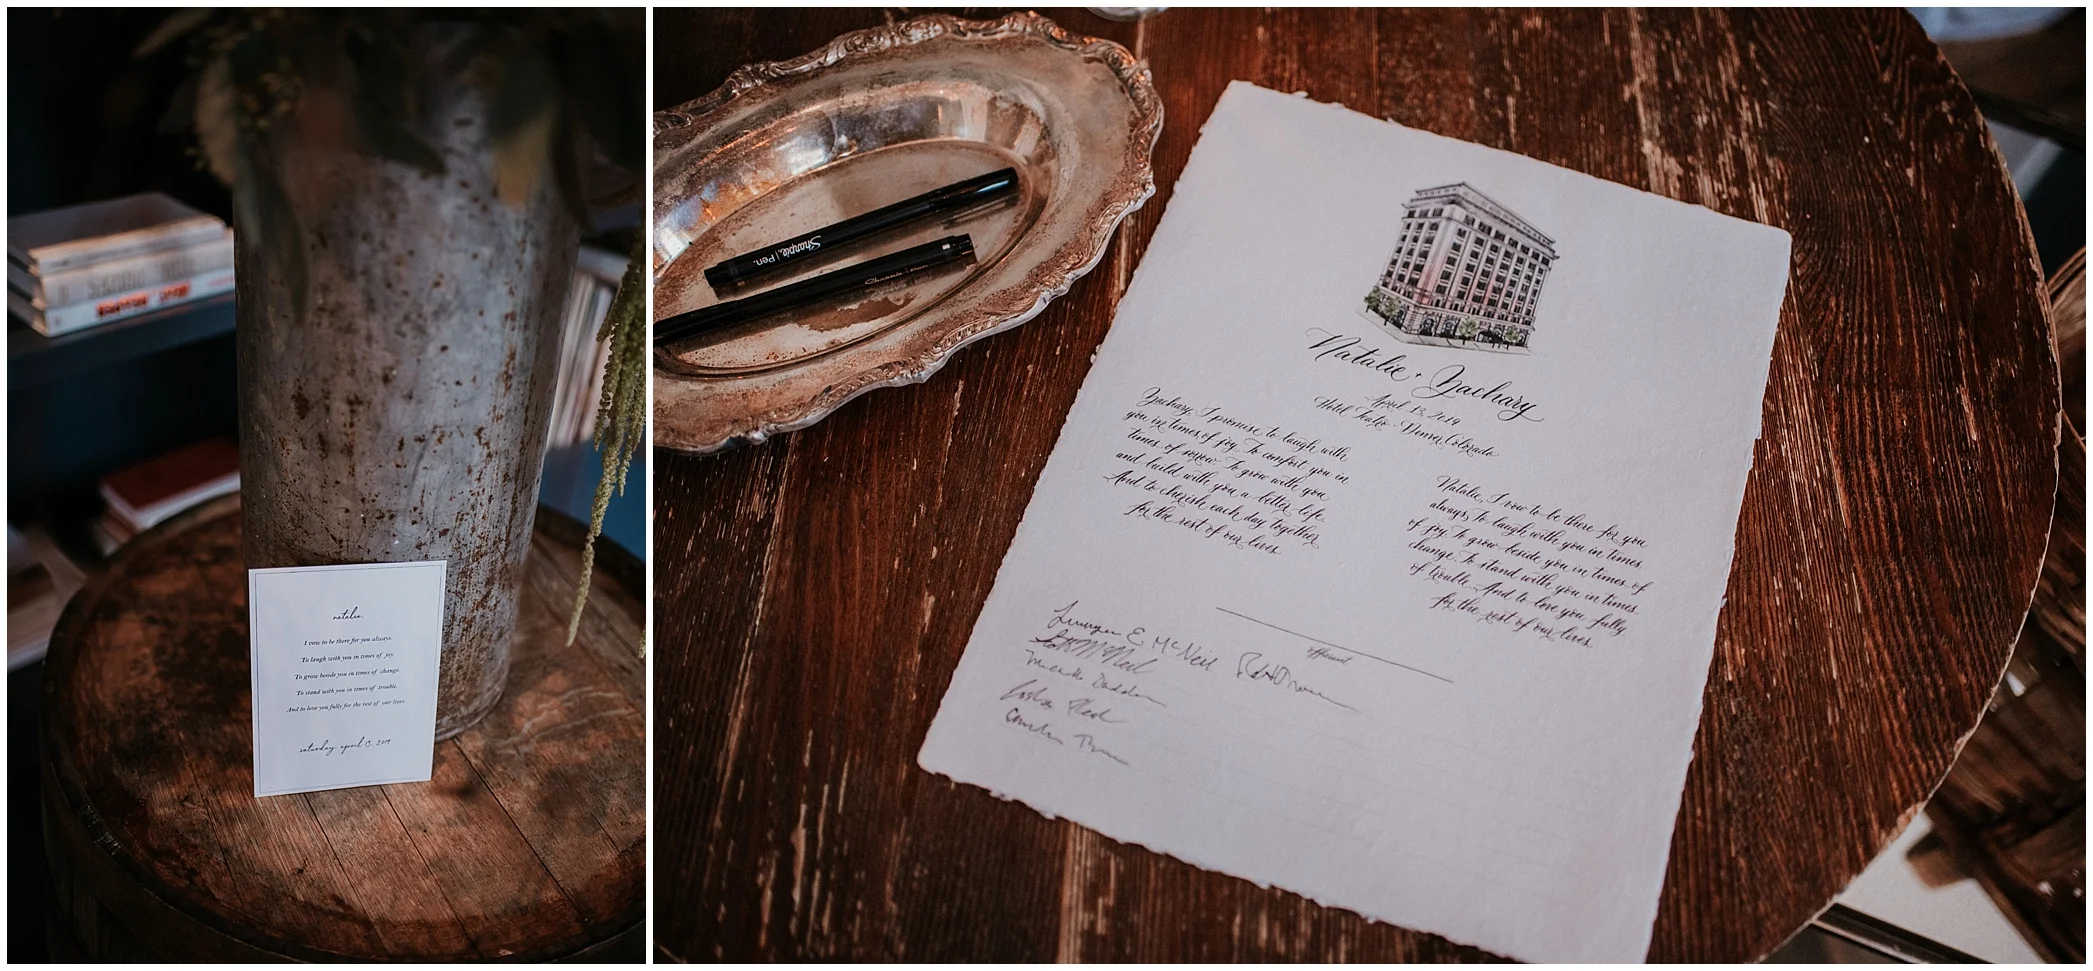 natalie.
I vow to be there for you always.
To laugh with you in times of joy.
To grow beside you in times of change.
To stand with you in times of trouble.
And to love you fully for the rest of our lives.
saturday. april 13. 2019
Sharpie. | Pen.
Sharpie | Pen
Natalie + Zachary
April 13, 2019
Hotel Teatro · Denver, Colorado
Zachary, I promise to laugh with
you in times of joy. To comfort you in
times of sorrow. To grow with you
and build with you a better life.
And to cherish each day together
for the rest of our lives.
Natalie, I vow to be there for you
always. To laugh with you in times
of joy. To grow beside you in times of
change. To stand with you in times
of trouble. And to love you fully
for the rest of our lives.
officiant
E. McNeil
McNeil